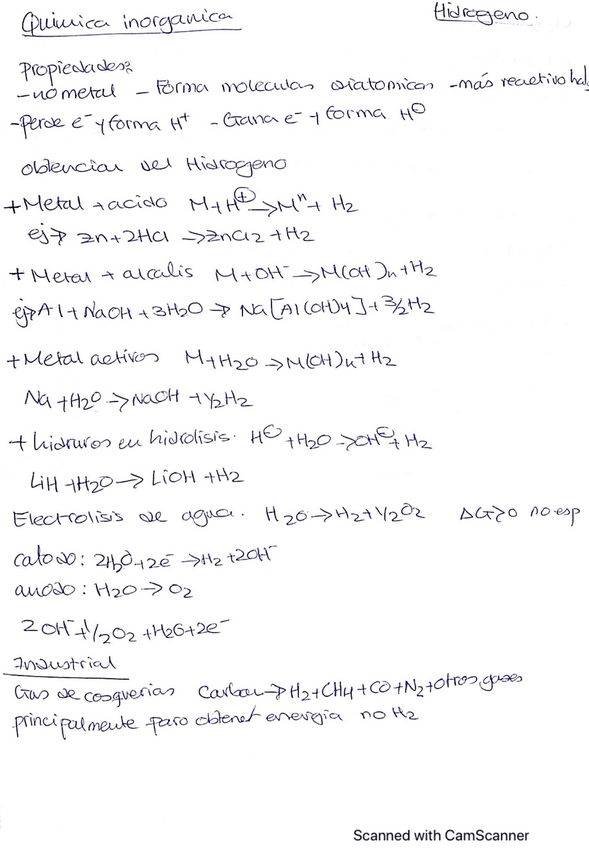 Quimica inorganica
Hidrogeno.
Propiedades:
-no metal - Forma moleculas diatomicas -más reactivo hal
-Perde e⁻ y forma H⁺ - Gana e⁻ y forma H⊖
obtencion del Hidrogeno
+Metal + acido M+H⊕→Mⁿ+ H₂
ej→ Zn+2HCl →ZnCl₂+H₂
+Metal + alcalis M+OH⁻→M(OH)n+H₂
ej→Al+NaOH+3H₂O→ Na[Al(OH)4]+3/2H₂
+Metal activos M+H₂O→M(OH)n+H₂
Na+H₂O→NaOH+1/2H₂
+hidruros en hidrolisis. H⊖+H₂O→OH⊖+H₂
LiH+H₂O→ LiOH+H₂
Electrolisis de agua. H₂O→H₂+1/2O₂ ΔG>0 no esp
catodo: 2H₂O+2e⁻→H₂+2OH⁻
anodo: H₂O→O₂
2OH⁻→1/2O₂+H₂O+2e⁻
Industrial
Gas de coquerias Carbon→H₂+CH4+CO+N₂+otros gases
principalmente para obtener energia no H₂
Scanned with CamScanner